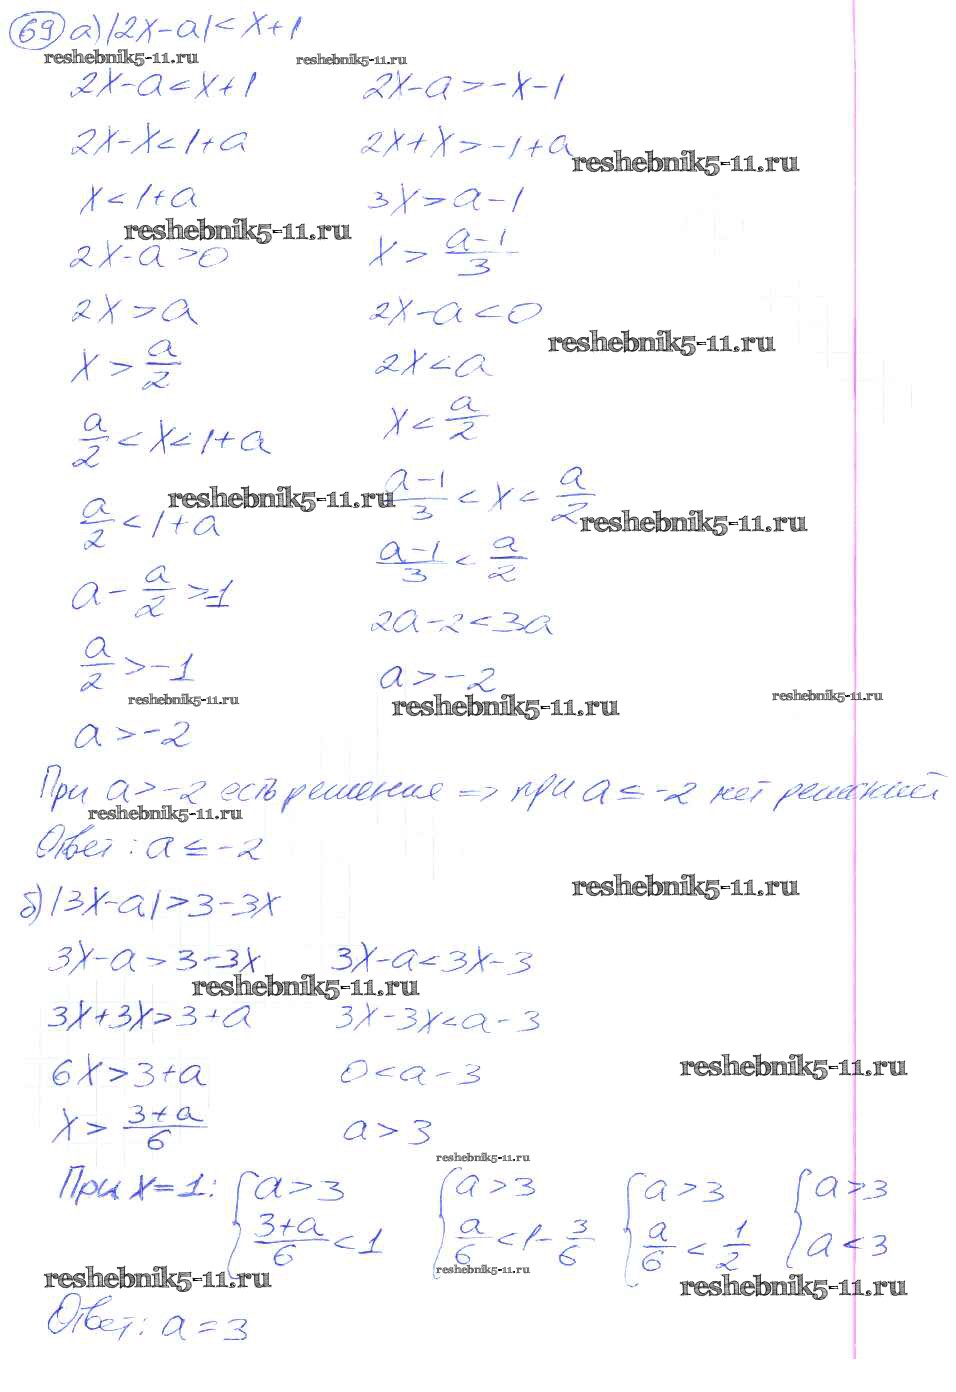 69 а) |2x-a| < x+1
reshebnik5-11.ru reshebnik5-11.ru
2x-a < x+1 2x-a > -x-1
2x-x < 1+a 2x+x > -1+a
reshebnik5-11.ru
x < 1+a 3x > a-1
reshebnik5-11.ru
2x-a > 0 x > (a-1)/3
2x > a 2x-a < 0
reshebnik5-11.ru
x > a/2 2x < a
x < a/2
a/2 < x < 1+a
reshebnik5-11.ru (a-1)/3 < x < a/2
a/2 < 1+a reshebnik5-11.ru
(a-1)/3 < a/2
a - a/2 > -1
2a-2 < 3a
a/2 > -1 a > -2
reshebnik5-11.ru reshebnik5-11.ru reshebnik5-11.ru
a > -2
При a > -2 есть решение => при a ≤ -2 нет решений
reshebnik5-11.ru
Ответ: a ≤ -2
reshebnik5-11.ru
б) |3x-a| > 3-3x
3x-a > 3-3x 3x-a < 3x-3
reshebnik5-11.ru
3x+3x > 3+a 3x-3x < a-3
6x > 3+a 0 < a-3
reshebnik5-11.ru
x > (3+a)/6 a > 3
reshebnik5-11.ru
При x=1: { a > 3 { a > 3 { a > 3 { a > 3
(3+a)/6 < 1 a/6 < 1 - 3/6 a/6 < 1/2 a < 3
reshebnik5-11.ru reshebnik5-11.ru reshebnik5-11.ru
Ответ: a = 3